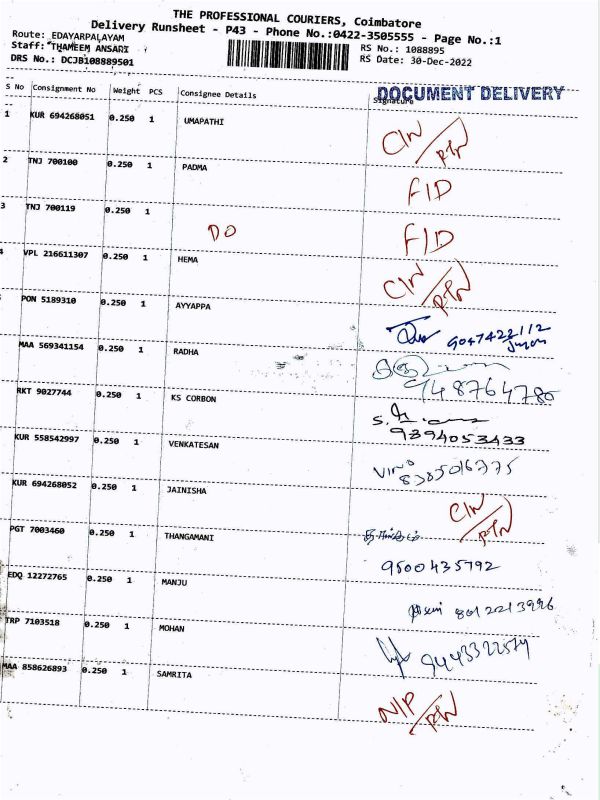 THE PROFESSIONAL COURIERS, Coimbatore
Delivery Runsheet - P43 - Phone No.:0422-3505555 - Page No.:1
Route: EDAYARPALAYAM
Staff: THAMEEM ANSARI RS No.: 1088895
DRS No.: DCJB108889501 RS Date: 30-Dec-2022
DOCUMENT DELIVERY
S No Consignment No Weight PCS Consignee Details Signature
1 KUR 694268051 0.250 1 UMAPATHI CIN/RTN
2 TNJ 700100 0.250 1 PADMA FID
3 TNJ 700119 0.250 1 DO FID
4 VPL 216611307 0.250 1 HEMA CIN/RTN
PON 5189310 0.250 1 AYYAPPA 9047422112
MAA 569341154 0.250 1 RADHA 948764780
RKT 9027744 0.250 1 KS CORBON 9394053433
KUR 558542997 0.250 1 VENKATESAN
KUR 694268052 0.250 1 JAINISHA CIN/RTN
PGT 7003460 0.250 1 THANGAMANI 9500435792
EDQ 12272765 0.250 1 MANJU 8012213996
TRP 7103518 0.250 1 MOHAN
MAA 858626893 0.250 1 SAMRITA N/P/RTN